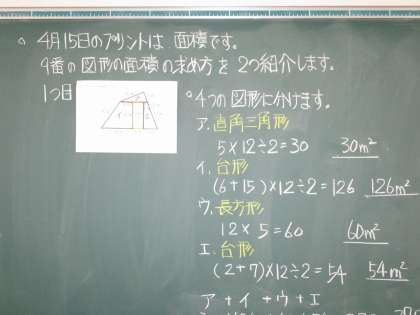 。4月15日のプリントは 面積です。
9番の図形の面積の求め方を 2つ紹介します。
1つ目
。4つの図形に分けます。
ア.直角三角形
5×12÷2=30 30m²
イ.台形
(6+15)×12÷2=126 126m²
ウ.長方形
12×5=60 60m²
エ.台形
(2+7)×12÷2=54 54m²
ア+イ+ウ+エ